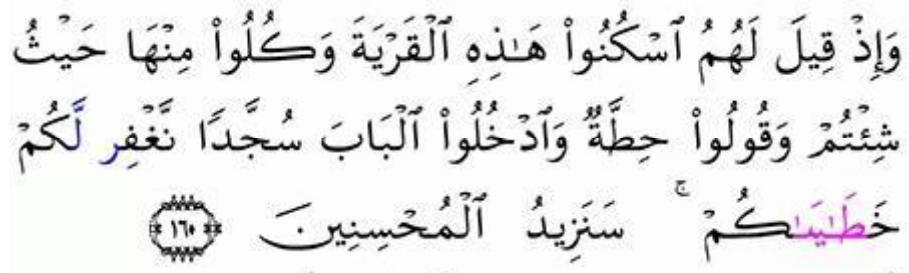 وَإِذْ قِيلَ لَهُمُ ٱسْكُنُوا۟ هَـٰذِهِ ٱلْقَرْيَةَ وَكُلُوا۟ مِنْهَا حَيْثُ
شِئْتُمْ وَقُولُوا۟ حِطَّةٌ وَٱدْخُلُوا۟ ٱلْبَابَ سُجَّدًا نَّغْفِر لَّكُمْ
خَطَـٰيَـٰكُمْ ۚ سَنَزِيدُ ٱلْمُحْسِنِينَ ١٦٥